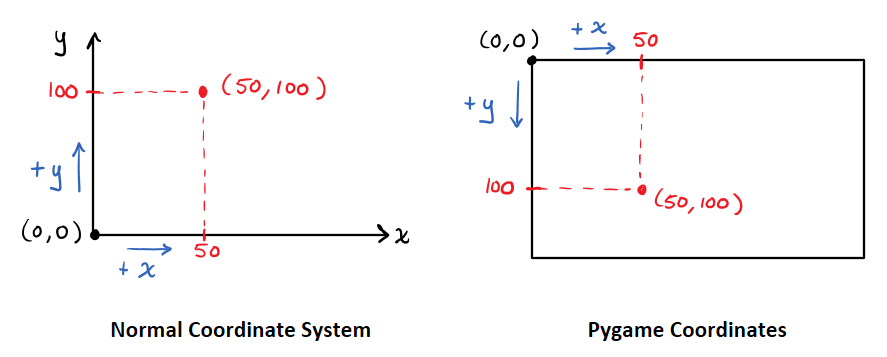 y
100
(50,100)
+y
(0,0)
x
50
+x
Normal Coordinate System
(0,0)
+x
50
+y
100
(50,100)
Pygame Coordinates